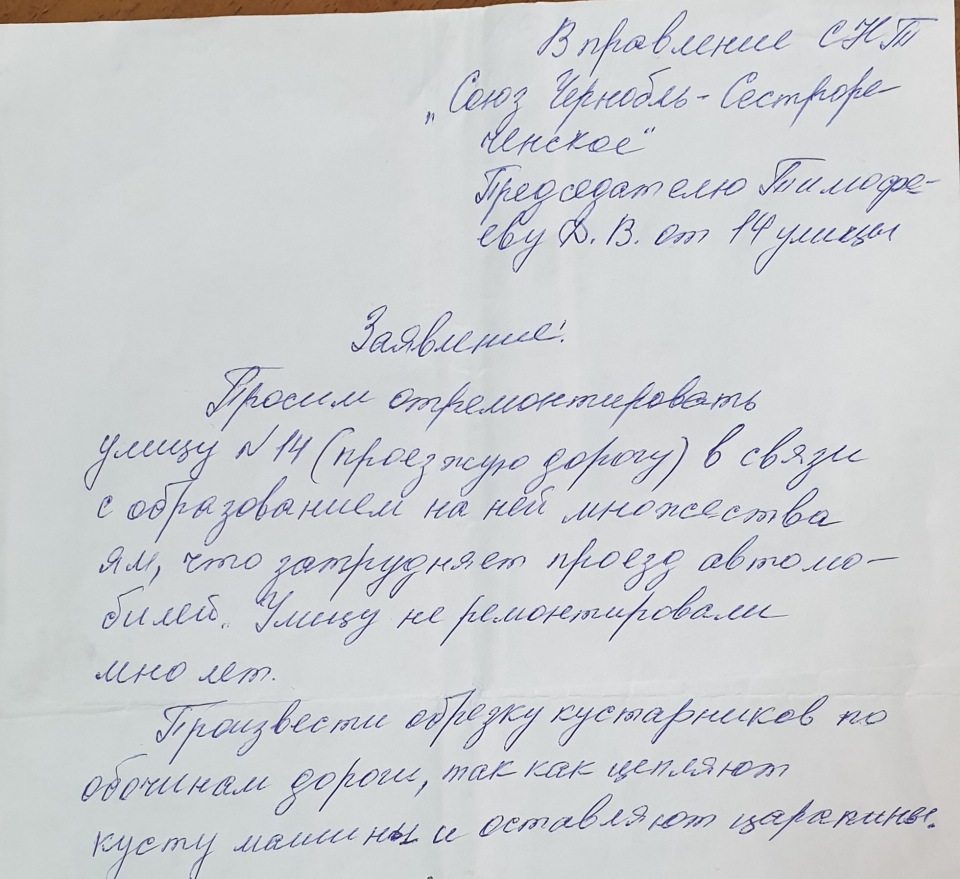 В правление СНТ
„Союз Чернобль-Сестроре-
ченское"
Председателю Тимофе-
еву Д. В. от 14 улицы
Заявление.
Просим отремонтировать
улицу N14 (проезжую дорогу) в связи
с образованием на ней множества
ям, что затрудняет проезд автомо-
билей. Улицу не ремонтировали
мно лет.
Произвести обрезку кустарников по
обочинам дороги, так как цепляют
кусту машины и оставляют царапины.